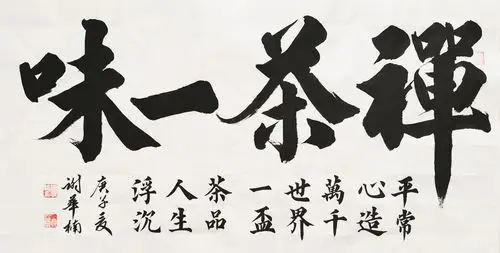 禪茶一味
平常
心造
萬千
世界
一盃
茶品
人生
浮沉
庚子夏
謝華楠